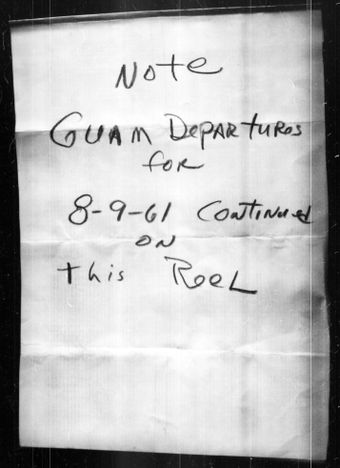 Note
Guam Departures
for
8-9-61 Continued
on
this Reel